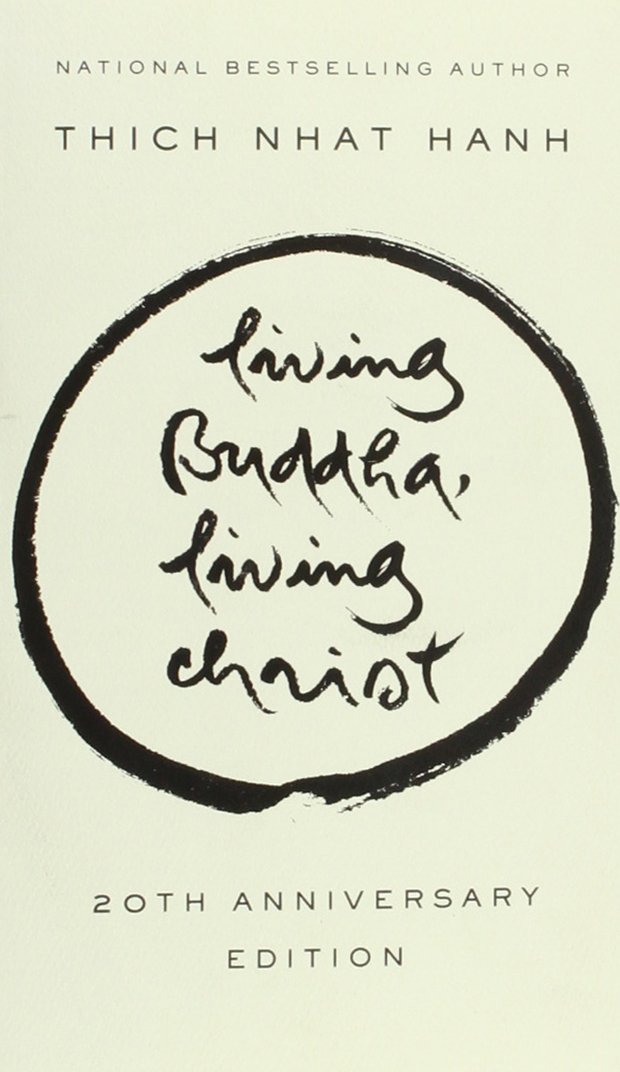 NATIONAL BESTSELLING AUTHOR
THICH NHAT HANH
living
Buddha,
living
christ
20TH ANNIVERSARY
EDITION